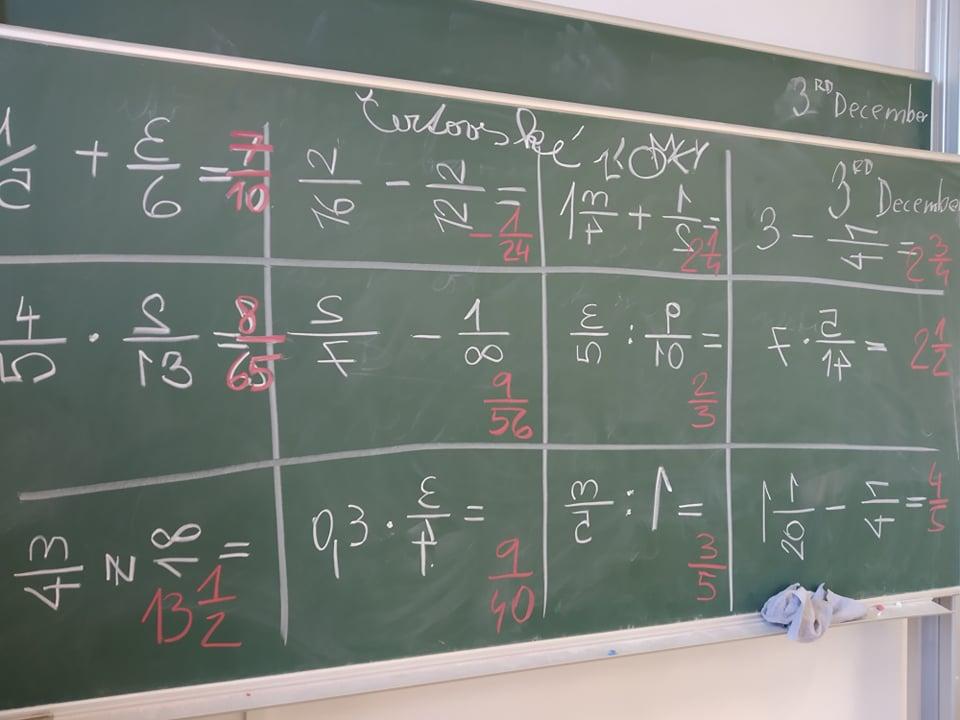 3RD December
Čertovské
3RD December
1/5 + 3/6 = 7/10
2/16 - 2/12 = -1/24
1 3/4 + 1/2 = 2 1/4
3 - 1/4 = 2 3/4
4/5 · 2/13 = 8/65
2/7 - 1/8
9/56
3/5 : 9/10 = 2/3
7 · 5/14 = 2 1/2
3/4 z 18 = 13 1/2
0,3 · 3/4 = 9/40
3/5 : 1 = 3/5
1 1/20 - 1/4 = 4/5